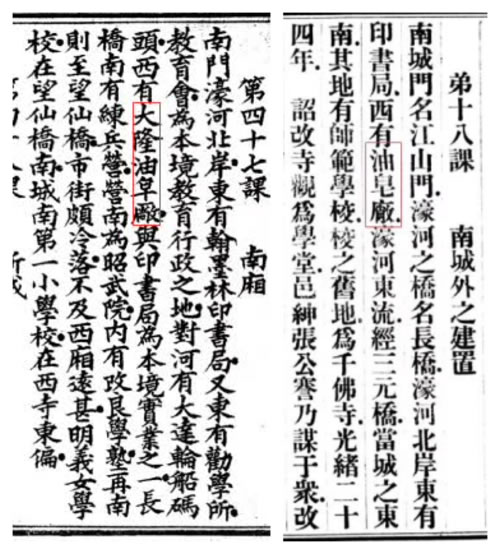 第四十七課　南廂
南門濠河北岸東有翰墨林印書局•又東有勸學所•
教育會為本境教育行政之地•對河有大達輪船碼
頭•西有大隆油皂廠•與印書局為本境實業之一•長
橋南有練兵營•營南為昭武院•內有改良學塾•再南
則至望仙橋•市街頗冷落•不及西廂遠甚•明義女學
校在望仙橋南•城南第一小學校•在西寺東偏•
弟十八課　南城外之建置
南城門名江山門．濠河之橋名長橋．濠河北岸東有
印書局．西有油皂廠．濠河東流．經三元橋．當城之東
南．其地有師範學校．校之舊地爲千佛寺．光緒二十
四年．　詔改寺觀爲學堂．邑紳張公謇乃謀于衆．改